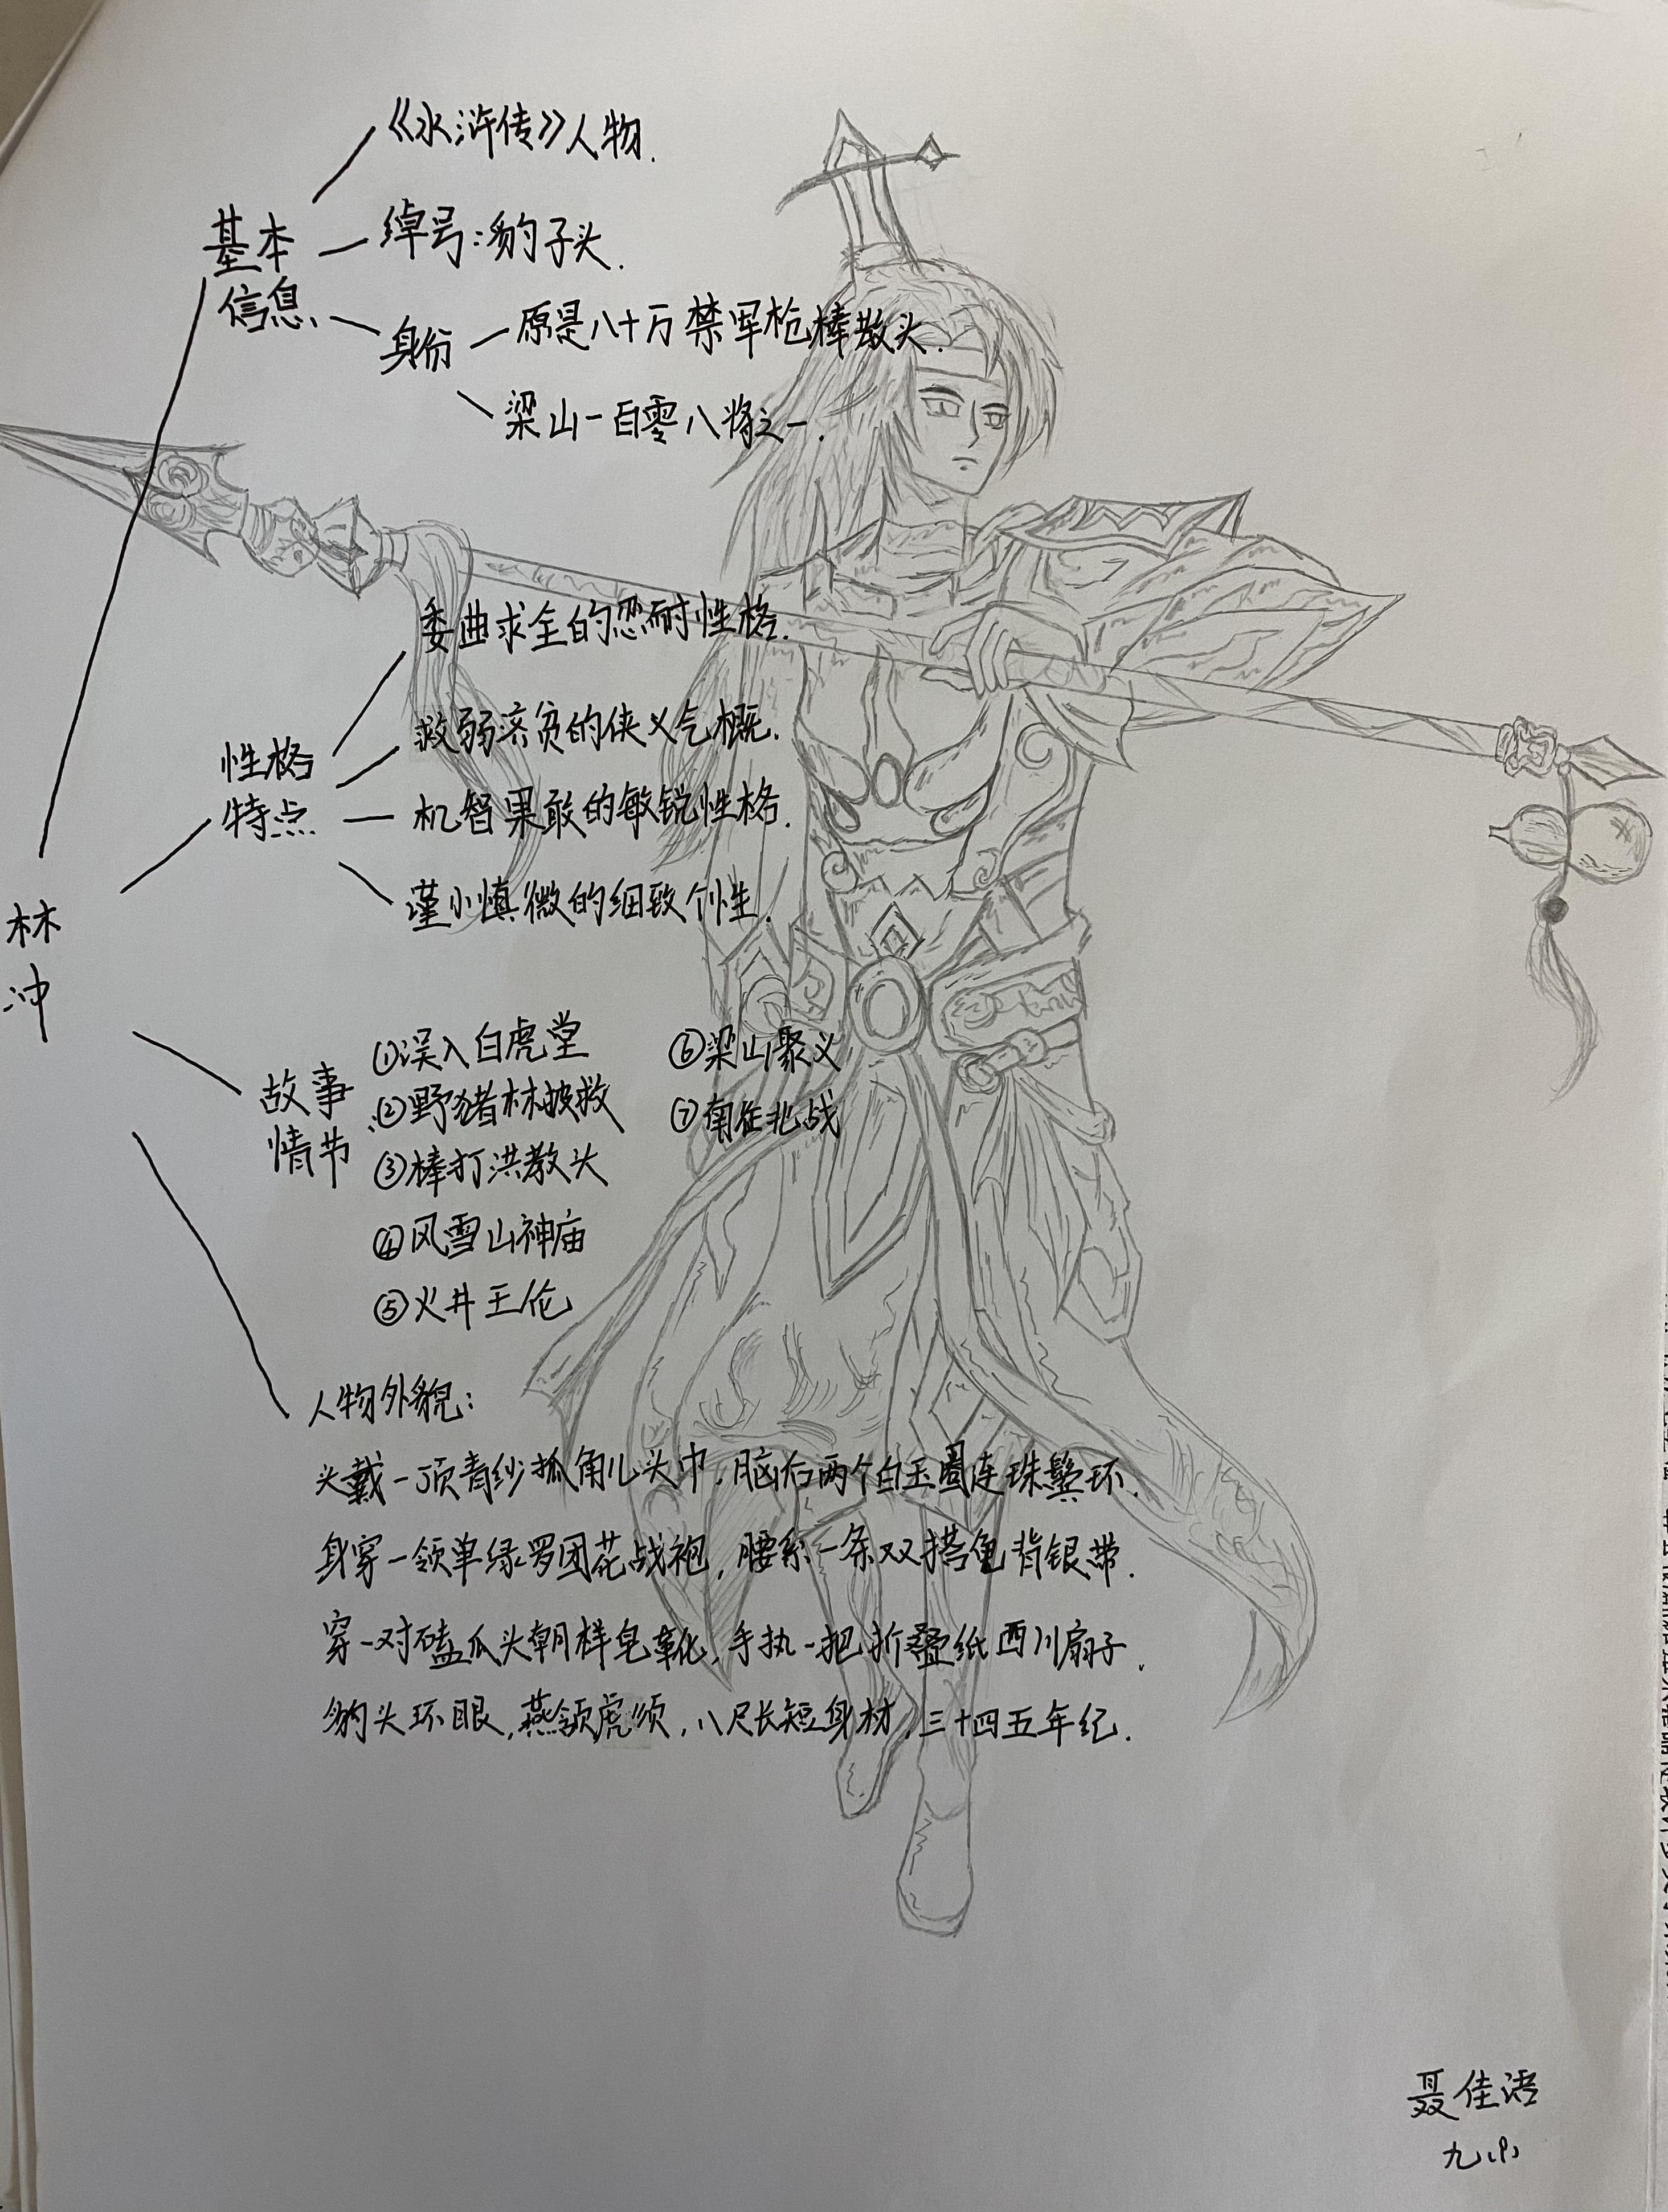 林
冲
基本
信息
《水浒传》人物.
绰号:豹子头.
身份
原是八十万禁军枪棒教头.
梁山一百零八将之一.
性格
特点
委曲求全的忍耐性格.
救弱济贫的侠义气概.
机智果敢的敏锐性格.
谨小慎微的细致个性.
故事
情节
①误入白虎堂
②野猪林被救
③棒打洪教头
④风雪山神庙
⑤火并王伦
⑥梁山聚义
⑦南征北战
人物外貌:
头戴一顶青纱抓角儿头巾,脑后两个白玉圈连珠鬓环.
身穿一领单绿罗团花战袍,腰系一条双搭龟背银带.
穿一对磕瓜头朝样皂靴,手执一把折叠纸西川扇子.
豹头环眼,燕颔虎须,八尺长短身材,三十四五年纪.
聂佳语